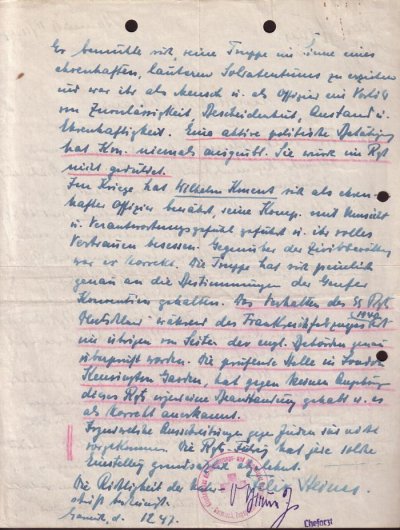 Er bemühte sich, seine Truppe im Sinne eines
ehrenhaften, lauteren Soldatentums zu erziehen
und war ihr als Mensch u. als Offizier ein Vorbild
von Zuverlässigkeit, Bescheidenheit, Anstand u.
Ehrenhaftigkeit. Eine aktive politische Betätigung
hat Km. niemals ausgeübt. Sie wurde im Rgt
nicht geduldet.
Im Kriege hat Wilhelm Kment sich als ehren-
hafter Offizier bewährt, seine Komp. mit Umsicht
u. Verantwortungsgefühl geführt u. ihr volles
Vertrauen besessen. Gegenüber der Zivilbevölkerung
war er korrekt. Die Truppe hat sich peinlich
genau an die Bestimmungen der Genfer
Konvention gehalten. Das Verhalten des SS Rgt.
"Deutschland" während des Frankreichfeldzuges (1940) ist
im übrigen von Seiten der engl. Behörden genau
überprüft worden. Die prüfende Stelle in London
Kensington Garden, hat gegen keinen Angehörigen
dieses Rgts irgendeine Beanstandung gehabt u. es
als korrekt anerkannt.
Irgendwelche Ausschreitungen gegen Juden sind nicht
vorgekommen. Die Rgts. Führg hat jede solche
Einstellung grundsätzlich abgelehnt.
Die Richtigkeit der Unter- Felix Steiner
schrift bestätigt
d. 12.47.
Chefarzt